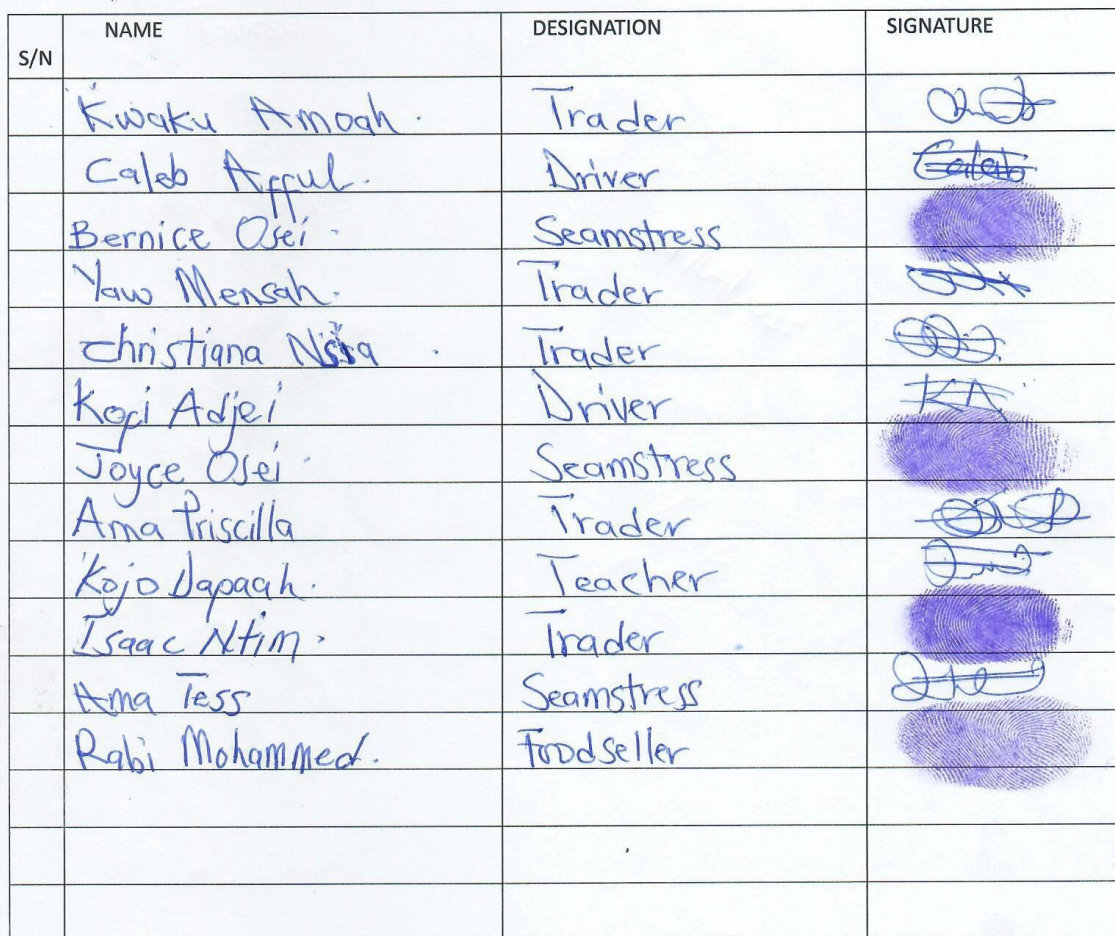 S/N NAME DESIGNATION SIGNATURE
Kwaku Amoah. Trader
Caleb Afful. Driver Caleb
Bernice Osei. Seamstress
Yaw Mensah. Trader
Christiana Trader
Kofi Adjei Driver KA
Joyce Osei. Seamstress
Ama Priscilla Trader
Kojo Dapaah. Teacher
Isaac Ntim. Trader
Ama Tess Seamstress
Rabi Mohammed. Foodseller